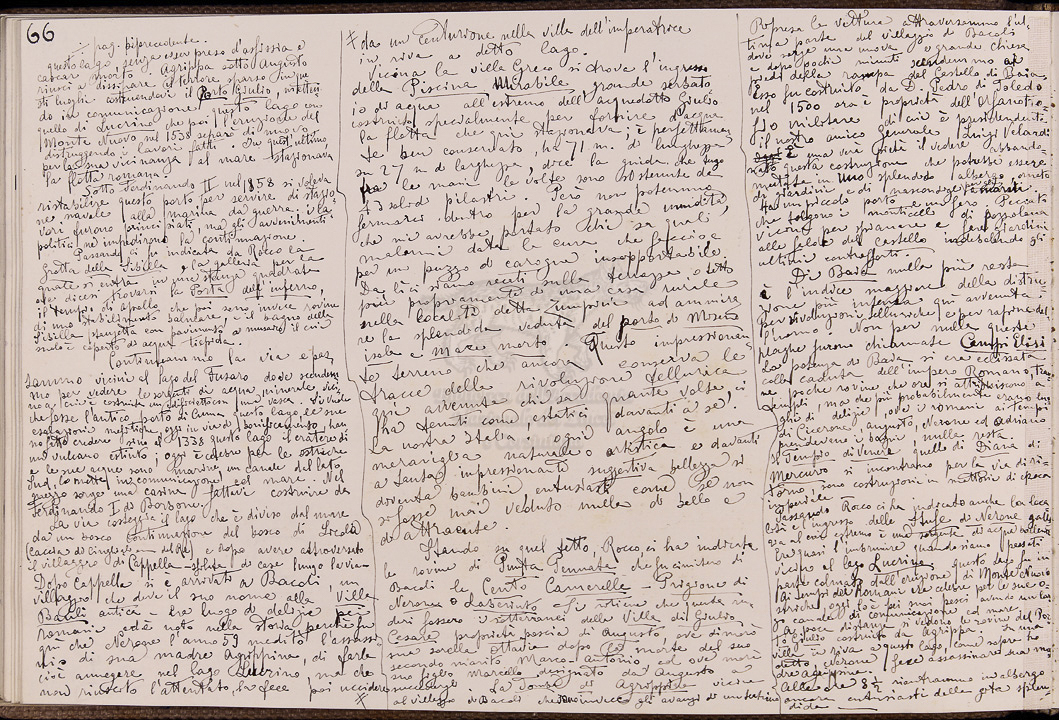 66
pag. piprecedente.
questo lago, senza esser preso d'asfissia e
cascar morto. Agrippa sotto Augusto
riuscì a dissipare il fetore sparso lungo
sti luoghi costruendovi il Porto Giulio, metten
do in comunicazione questo lago con
quello di Lucrino che poi l'eruzione del
Monte Nuovo nel 1538 separò di nuovo
distruggendo i lavori fatti. In quest'ultimo,
per la sua vicinanza al mare stazionava
la flotta romana
Sotto Ferdinando II nel 1858 si voleva
ristabilire questo porto per servire di stazio
ne navale alla marina da guerra; i la
vori furono principiati, ma gli avvenimenti
politici ne impedirono la continuazione.
Passando ci fu indicata da Rocco la
grotta della Sibilla, galleria per la
quale si entra in una stanza quadrata
ove dicesi trovarsi la Porta dell'inferno,
il tempio di Apollo che poi sono invece rovine
di uno stabilimento balneare, e il bagno della
Sibilla stanzetta con pavimento a musaico il cui
suolo è coperto di acqua tiepida.
Continuammo la via e pas
sammo vicini al lago del Fusaro dove scendem
mo per vedere le sorgenti di acqua minerale
che fosse l'antico porto di Cuma questo lago, le sue
esalazioni mefitiche, oggi in via di bonificamento, han
no fatto credere sino al 1338 questo lago il cratere di
un vulcano estinto; oggi è celebre per le ostriche
e le sue acque sono marine, un canale del lato
Sud, lo mette in comunicazione col mare. Nel
mezzo sorge una casina fattavi costruire da
Ferdinando I di Borbone.
La via costeggia il lago che è diviso dal mare
da un bosco continuazione del bosco di Licola
(caccia dei cinghiali un dì del Re) e dopo avere attraversato
il villaggio di Cappella - isolato di case lungo la via
Dopo Cappella si è arrivati a Bacoli, un
villaggio che deve il suo nome alla Villa
Bauli antica - era luogo di delizie pei
romani ed è noto nella storia perchè fu
qui che Nerone l'anno 59 meditò l'assassi
nio di sua madre Agrippina, di farla
cioè annegare nel lago Lucrino, ma che
non riuscito l'attentato, la fece poi uccidere
da un Centurione nella villa dell'imperatrice
in riva a detto lago.
Vicino la villa Greco si trova l'ingresso
della Piscina Mirabile, grande serbato
io di acqua all'estremo dell'acquedotto Giulio
costruito specialmente per fornire d'acqua
la flotta che qui stazionava; è perfettamen
te ben conservato, ha 71 m. di lunghezza
su 27 m di larghezza, dice la guida che tengo
fra le mani, le volte sono sostenute da
48 solidi pilastri. Però non potemmo
fermarci dentro per la grande umidità
che mi avrebbe portato chi sa quali
malanni data la cura che faccio e
per un puzzo di carogne insopportabile.
Da lì ci siamo recati sulla terrazza, o tetto
per propriamente di una casa rurale
nella località detta Zimparie ad ammira
re la splendida veduta del porto di Miseno
isola e Mare morto. Questo impressionan
te terreno che ancora conserva le
tracce della rivoluzione tellurica
qui avvenuta chi sa quante volte, ci
ha tenuti come, estatici davanti a sè.
La nostra Italia in ogni angolo è una
meraviglia naturale o artistica e davanti
a tanta impressionante suggestiva bellezza si
diventa bambini entusiasti come se non
si fosse mai veduto nulla di bello e
di attraente.
Stando su quel tetto, Rocco, ci ha indicato
le rovine di Punta Pennata, che fu cimitero di
Bacoli le Cento Camerelle - Prigione di
Nerone o Labirinto - Si ritiene che queste ro
vine fossero i sotterranei della Villa di Giulio
Cesare proprietà poscia di Augusto, ove dimorò
sua sorella Ottavia dopo la morte del suo
secondo marito Marco Antonio ed ove morì
suo figlio Marcello designato da Augusto
successore. La tomba di Agrippina vicino
al villaggio di Bacoli che non invece gli avanzi di un teatrino
Ripresa la vettura attraversammo l'ul
tima parte del villaggio di Bacoli
dove sorge una nuova e grande chiesa
e dopo pochi minuti scendemmo ai
piedi della rampa del Castello di Baia
Esso fu costruito da D. Pedro di Toledo
nel 1500 ora è proprietà dell'Orfanotro
fio militare di cui è presidente
il nostro amico generale Luigi Velardi
È una vera pietà il vedere abbando
nata questa costruzione che potrebbe essere
messa in uno splendido albergo, ornato
di giardini
Ha un piccolo porto e un faro. Peccato
che tolgono i monticelli di pozzolana
vicini per spianare e fare giardini
alle falde del castello indebolendo gli
ultimi contrafforti.
Di Baia nulla più resta
è l'indice maggiore della distru
zione più intensa qui avvenuta
per rivoluzioni telluriche e per rapine del
l'uomo. Non per nulla queste
plaghe furono chiamate Campi Elisi
La potenza di Baia si era eclissata
colla caduta dell'impero Romano, tran
ne poche rovine che ora si attribuiscono a
templi ma che più probabilmente erano luo
ghi di delizie, ove i romani ai tempi
di Cicerone, Augusto, Nerone ed Adriano
prendevano i bagni, nulla resta
Il Tempio di Venere, quello di Diana di
Mercurio si incontrano per la via di ri
torno, sono costruzioni in mattoni di epoca
imperiale.
Passando Rocco ci ha indicato anche la loca
lità e l'ingresso delle Stufe di Nerone galle
ria al cui estremo è una sorgente di acqua bollente
Era quasi l'imbrunire quando siamo passati
vicino al lago Lucrino, questo lago fu in
parte colmato dall'eruzione di Monte Nuovo
Ai tempi dei Romani era celebre per le sue o
striche, oggi lo è pei suoi pesci avendo un lun
go canale di comunicazione col mare.
A poca distanza si vedono le rovine del Por
to Giulio costruito da Agrippa. In una
villa in riva a questo lago, come sopra ho
detto, Nerone fece assassinare sua ma
dre Agrippina.
Alle ore 8 ½ rientrammo in albergo
ancora entusiasti della gita splen
dida